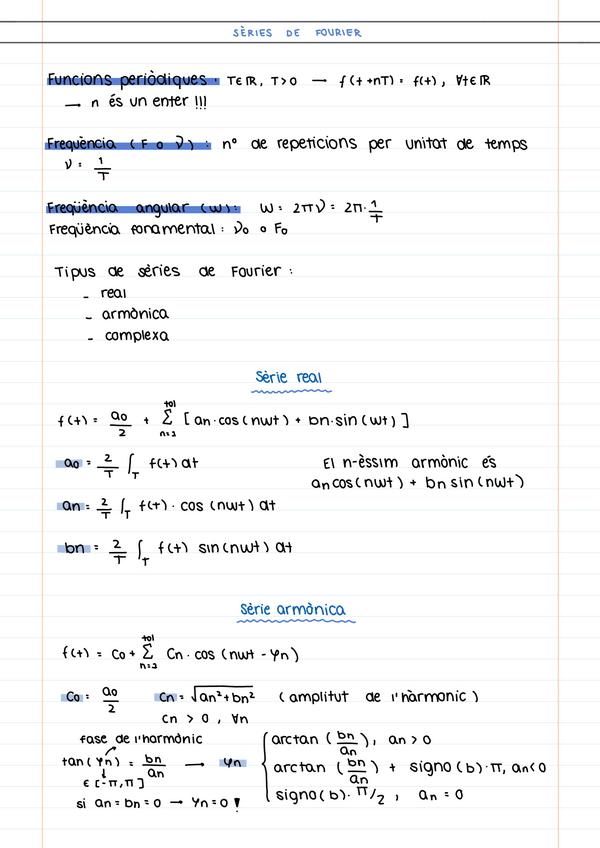 SÈRIES DE FOURIER
Funcions periòdiques : T∈ℝ, T>0 → f(t+nT) = f(t), ∀t∈ℝ
→ n és un enter !!!
Freqüència (F o ν) : nº de repeticions per unitat de temps
ν = 1/T
Freqüència angular (w): W = 2πν = 2π·1/T
Freqüència fonamental : ν₀ o F₀
Tipus de sèries de Fourier :
- real
- armònica
- complexa
Sèrie real
f(t) = a₀/2 + Σ_{n=1}^{+∞} [an·cos(nwt) + bn·sin(wt)]
a₀ = 2/T ∫_T f(t) dt
El n-èssim armònic és
an cos(nwt) + bn sin(nwt)
an = 2/T ∫_T f(t) · cos (nwt) dt
bn = 2/T ∫_T f(t) sin(nwt) dt
Sèrie armònica
f(t) = C₀ + Σ_{n=1}^{+∞} Cn · cos (nwt - φn)
C₀ = a₀/2 Cn = √(an²+bn²) (amplitut de l'hàrmonic)
cn > 0, ∀n
fase de l'harmònic
tan(φn) = bn/an → φn
∈ [-π,π]
si an=bn=0 → φn=0 !
{ arctan (bn/an), an>0
arctan (bn/an) + signo(b)·π, an<0
signo(b)·π/2, an=0